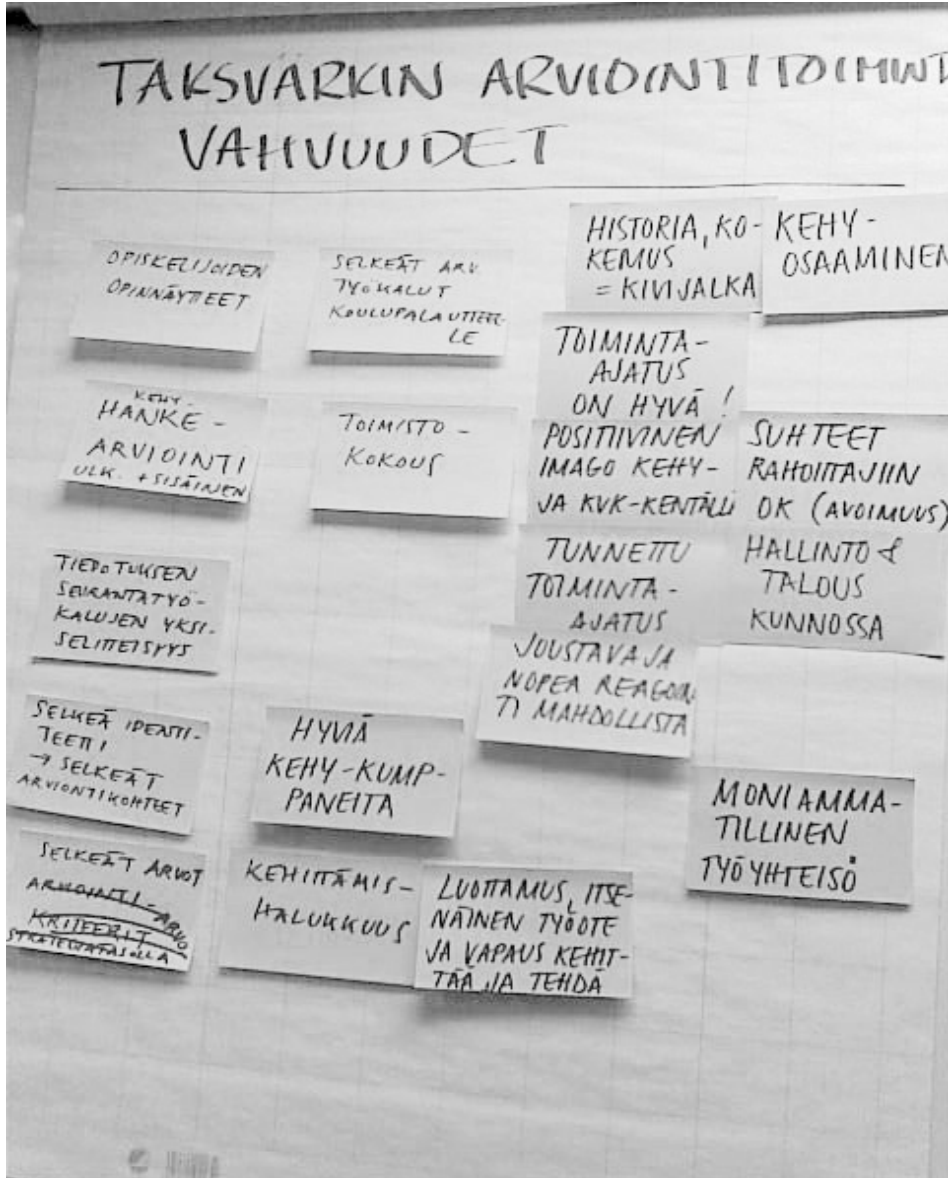 TAKSVÄRKIN ARVIOINTITOIMINT
VAHVUUDET
OPISKELIJOIDEN
OPINNÄYTTEET
SELKEÄT ARV.
TYÖKALUT
KOULUPALAUTTEEL-
LE
HISTORIA, KO-
KEMUS
= KIVIJALKA
KEHY-
OSAAMINEN
TOIMINTA-
AJATUS
ON HYVÄ !
KEHY-
HANKE-
ARVIOINTI
ULK. + SISÄINEN
TOIMISTO-
KOKOUS
POSITIIVINEN
IMAGO KEHY-
JA KVK-KENTÄLLÄ
SUHTEET
RAHOITTAJIIN
OK (AVOIMUUS)
TIEDOTUKSEN
SEURANTATYÖ-
KALUJEN YKSI-
SELITTEISYYS
TUNNETTU
TOIMINTA-
AJATUS
HALLINTO &
TALOUS
KUNNOSSA
JOUSTAVA JA
NOPEA REAGOIN
TI MAHDOLLISTA
SELKEÄ IDENTI-
TEETTI
→ SELKEÄT
ARVIONTIKOHTEET
HYVIÄ
KEHY-KUMP-
PANEITA
MONIAMMA-
TILLINEN
TYÖYHTEISÖ
SELKEÄT ARVOT
ARVIOINTI-ARVO
KRITEERIT
STRATEGIATASOLLA
KEHITTÄMIS-
HALUKKUUS
LUOTTAMUS, ITSE-
NÄINEN TYÖOTE
JA VAPAUS KEHIT-
TÄÄ JA TEHDÄ